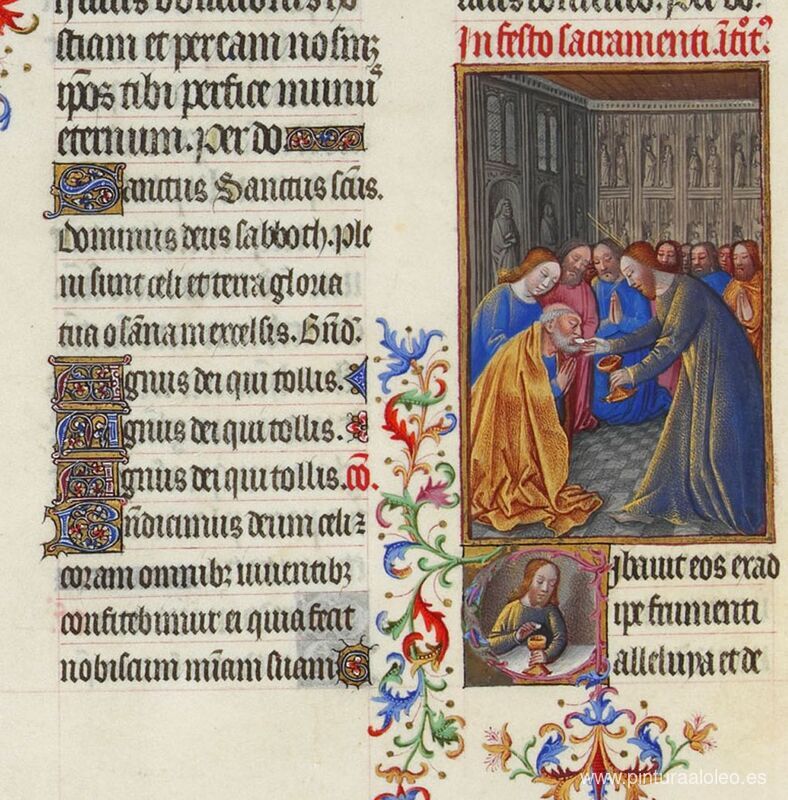 stiam et precam nos in
ipos tibi perfice munu
eternum. Per do
Sanctus Sanctus scūs.
Dominus deus sabboth. Ple
ni sunt celi et terra gloria
tua osāna in excelsis. Bn̄d.
Agnus dei qui tollis.
Agnus dei qui tollis.
Agnus dei qui tollis. cō.
Bn̄dicimus deum celi z
coram omnibꝫ uiuentibꝫ
confitebimur ei quia fecit
nobiscum mīam suam
In festo sacramenti. ītroit.
Cibauit eos ex ad
ipe frumenti
alleluya et de
www.pinturaaloleo.es